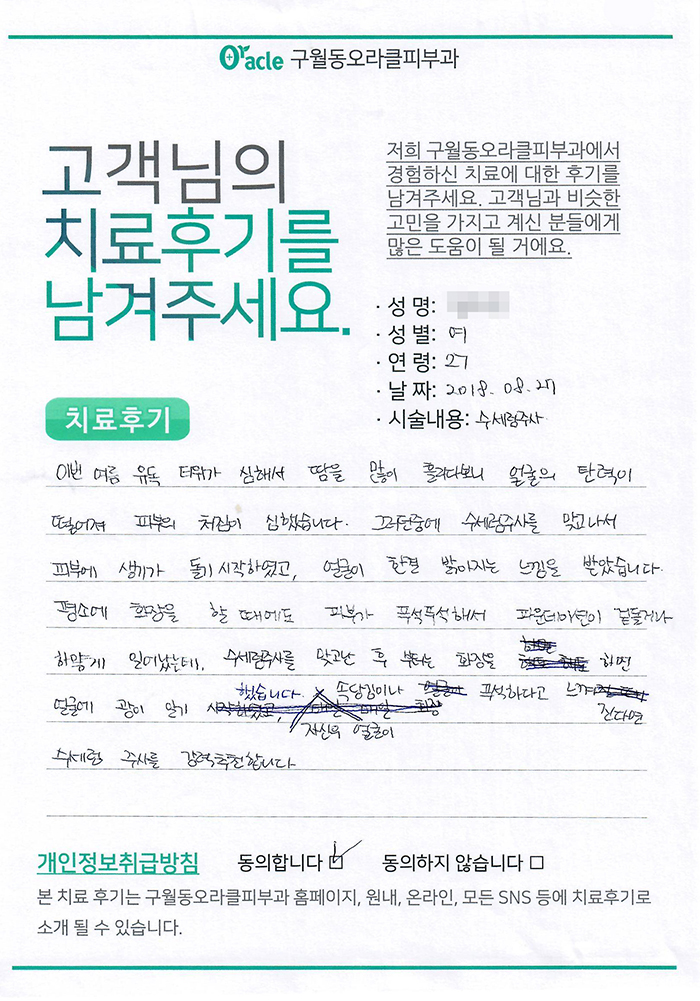 Oracle 구월동오라클피부과
고객님의
치료후기를
남겨주세요.
저희 구월동오라클피부과에서
경험하신 치료에 대한 후기를
남겨주세요. 고객님과 비슷한
고민을 가지고 계신 분들에게
많은 도움이 될 거에요.
· 성 명:
· 성 별: 여
· 연 령: 27
· 날 짜: 2018. 08. 27
· 시술내용: 수세럼주사
치료후기
이번 여름 유독 더위가 심해서 땀을 많이 흘리다보니 얼굴의 탄력이
떨어져 피부의 처짐이 심했습니다. 그러던중에 수세럼주사를 맞고나서
피부에 생기가 돌기 시작하였고, 얼굴이 한결 밝아지는 느낌을 받았습니다.
평소에 화장을 할 때에도 피부가 푸석푸석해서 파운데이션이 겉돌거나
하얗게 일어났는데, 수세럼주사를 맞고난 후 부터는 화장을 하면
얼굴에 광이 일기 했습니다. 속당김이나 푸석하다고 느껴진다면
자신의 얼굴이
수세럼 주사를 강력추천합니다
개인정보취급방침 동의합니다 동의하지 않습니다
본 치료 후기는 구월동오라클피부과 홈페이지, 원내, 온라인, 모든 SNS 등에 치료후기로
소개 될 수 있습니다.